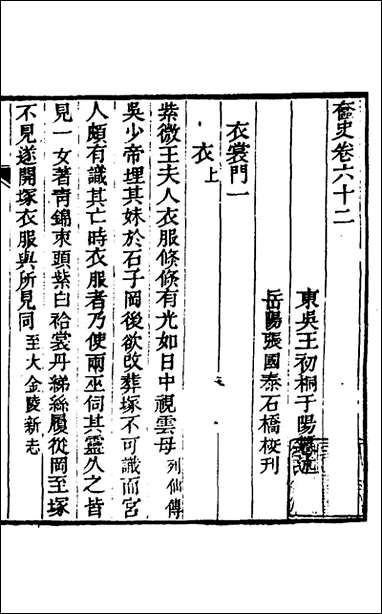 奩史卷六十二
東吳王初桐于陽
岳陽張國泰石橋校刊
衣裳門一
衣上
紫微王夫人衣服條條有光如日中視雲母列仙傳
吳少帝埋其妹於石子岡後欲改葬塚不可識而宮
人頗有識其亡時衣服者乃使兩巫伺其靈久之皆
見一女著靑錦束頭紫白袷裳丹綈絲履從岡至塚
不見遂開塚衣服與所見同至大金陵新志